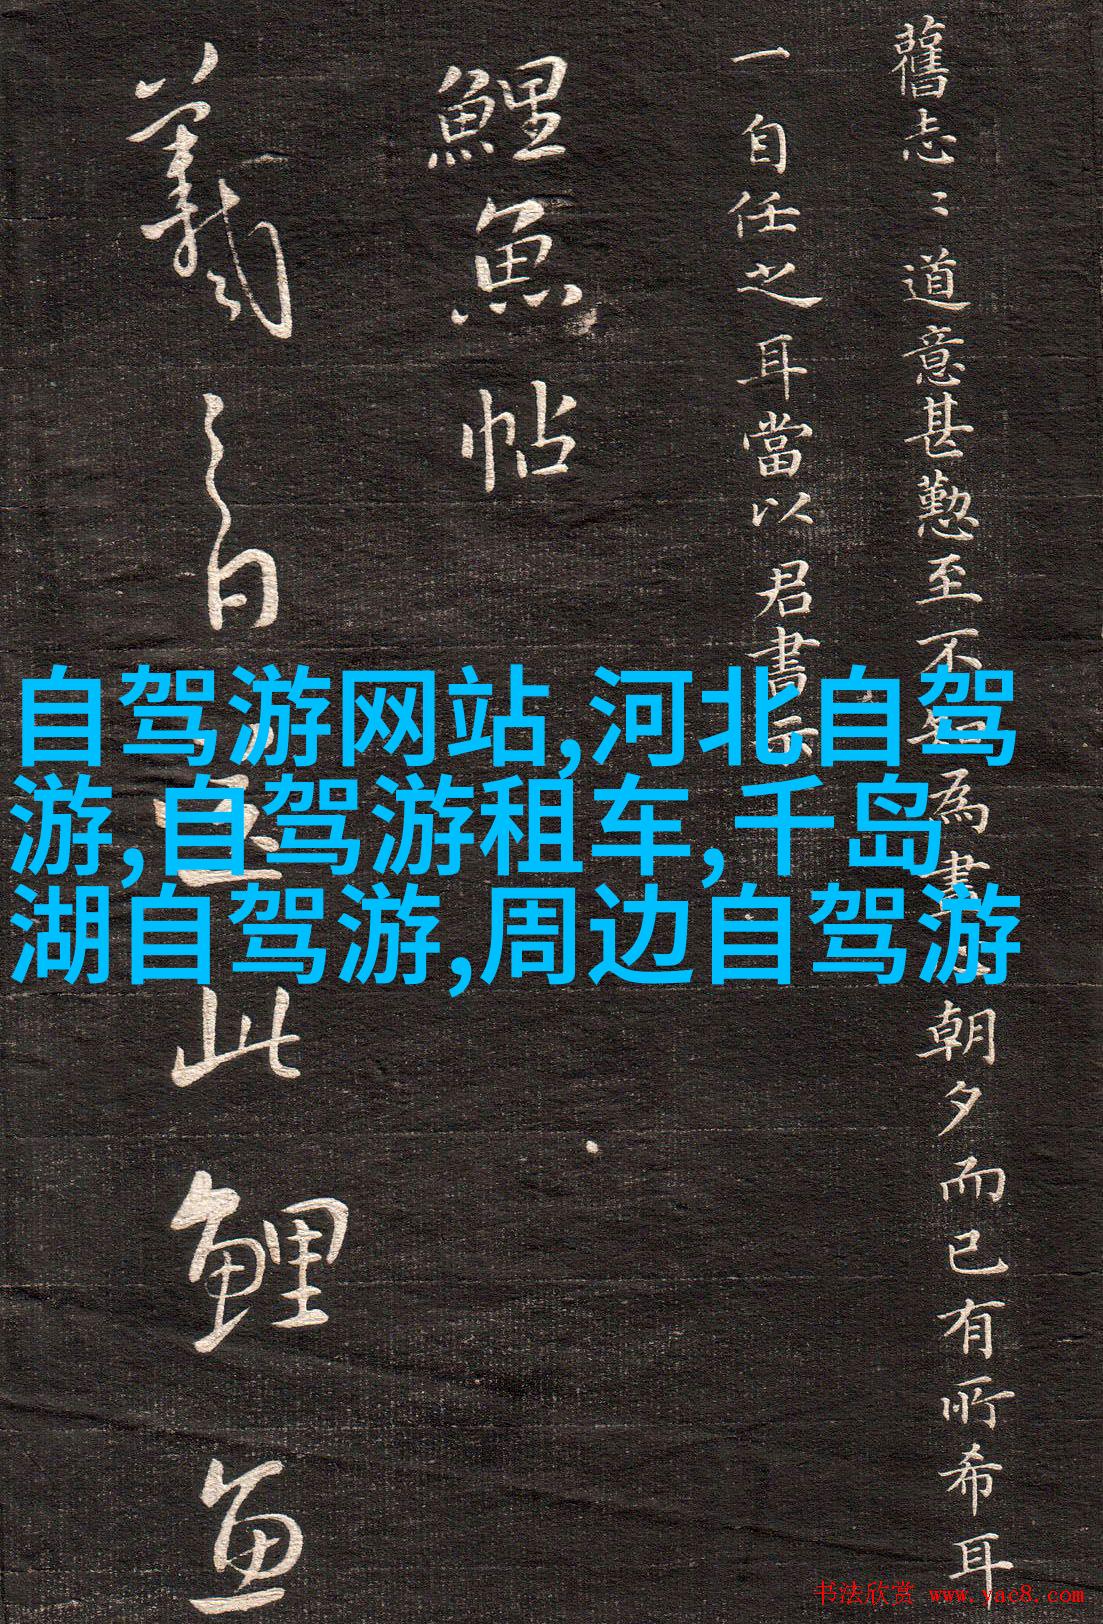 舊志〻道意甚懃至不為書朝夕而已有所希耳
一自任之耳當以君書示
鯉魚帖
羲之白此鯉魚
自驾游网站,河北自驾
游,自驾游租车,千岛
湖自驾游,周边自驾游
书法欣赏 www.yac8.com